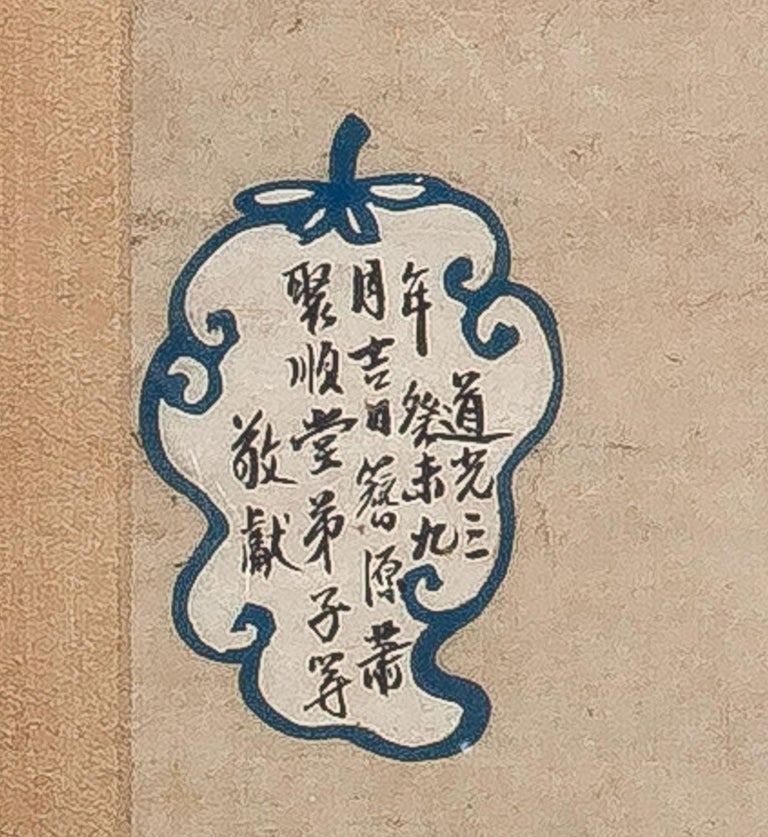 道光三
年癸未九
月吉日簪源萧
聚順堂弟子等
敬獻